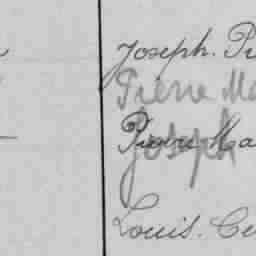 Joseph. Pi
Pierre Ma
Pierre Ma
Joseph
Louis. Cu